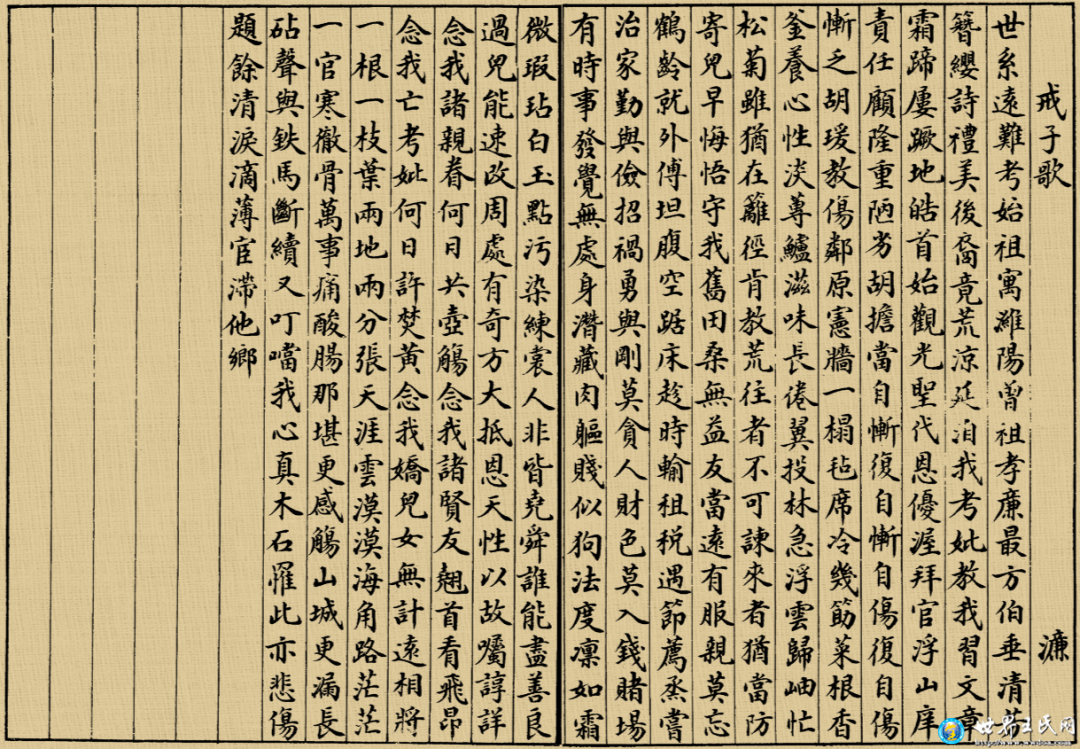 戒子歌 濂
世系遠難考始祖寓濰陽曾祖孝廉最方伯垂清芬
簪纓詩禮美後裔竟荒涼延洎我考妣教我習文章
霜蹄屢蹶地皓首始觀光聖代恩優渥拜官浮山庠
責任顧隆重陋劣胡擔當自慚復自慚自傷復自傷
慚乏胡瑗教傷鄰原憲牆一榻毡席冷幾筯菜根香
釜養心性淡蓴鱸滋味長倦翼投林急浮雲歸岫忙
松菊雖猶在籬徑肯教荒往者不可諫來者猶當防
寄兒早悔悟守我舊田桑無益友當遠有服親莫忘
鶴齡就外傅坦腹空踞床趁時輸租税遇節薦烝嘗
治家勤與儉招禍勇與剛莫貪人財色莫入錢賭場
有時事發覺無處身潛藏肉軀賤似狗法度凜如霜
微瑕玷白玉點污染練裳人非皆堯舜誰能盡善良
過兒能速改周處有奇方大抵恩天性以故囑諄詳
念我諸親眷何日共壺觴念我諸賢友翹首看飛昂
念我亡考妣何日許焚黃念我嬌兒女無計遠相將
一根一枝葉兩地兩分張天涯雲漠漠海角路茫茫
一官寒徹骨萬事痛酸腸那堪更感觴山城更漏長
砧聲與鉄馬斷續又叮噹我心真木石罹此亦悲傷
題餘清淚滴薄宦滯他鄉
世界王民网